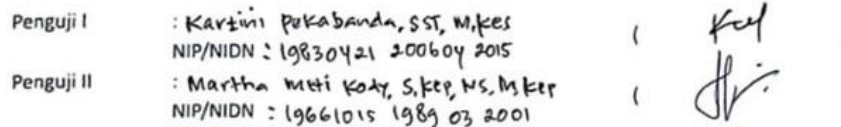 Penguji I : Kartini Pekabanda, SST, M,kes (
NIP/NIDN : 19830421 200604 2015
Penguji II : Martha Meti Kody, S,kep, NS, M,kep (
NIP/NIDN : 19661015 1989 03 2001